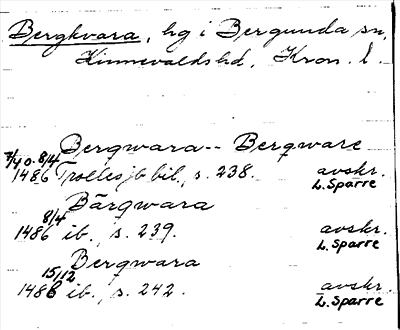 Bergkvara, hg i Bergunda sn,
Kinnevaldshd, Kron. l.
Bergwara -- Bergware
7/4 o. 8/4
1486 Trollesjb bil., s. 238. avskr.
L. Sparre
Bärgwara
8/4
1486 ib., s. 239. avskr.
L. Sparre
Bergwara
15/12
1488 ib., s. 242. avskr.
L. Sparre